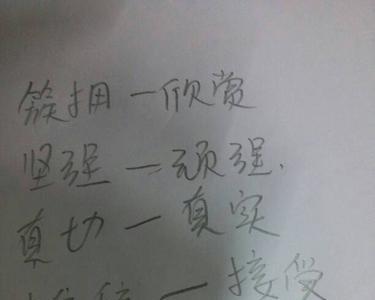 簇拥—欣赏
坚强—顽强.
真切—真实
—接受